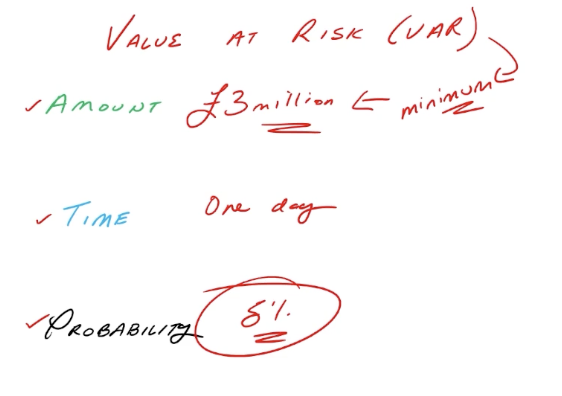 VALUE AT RISK (VAR)
AMOUNT £3 million ← minimum
TIME One day
PROBABILITY 5%